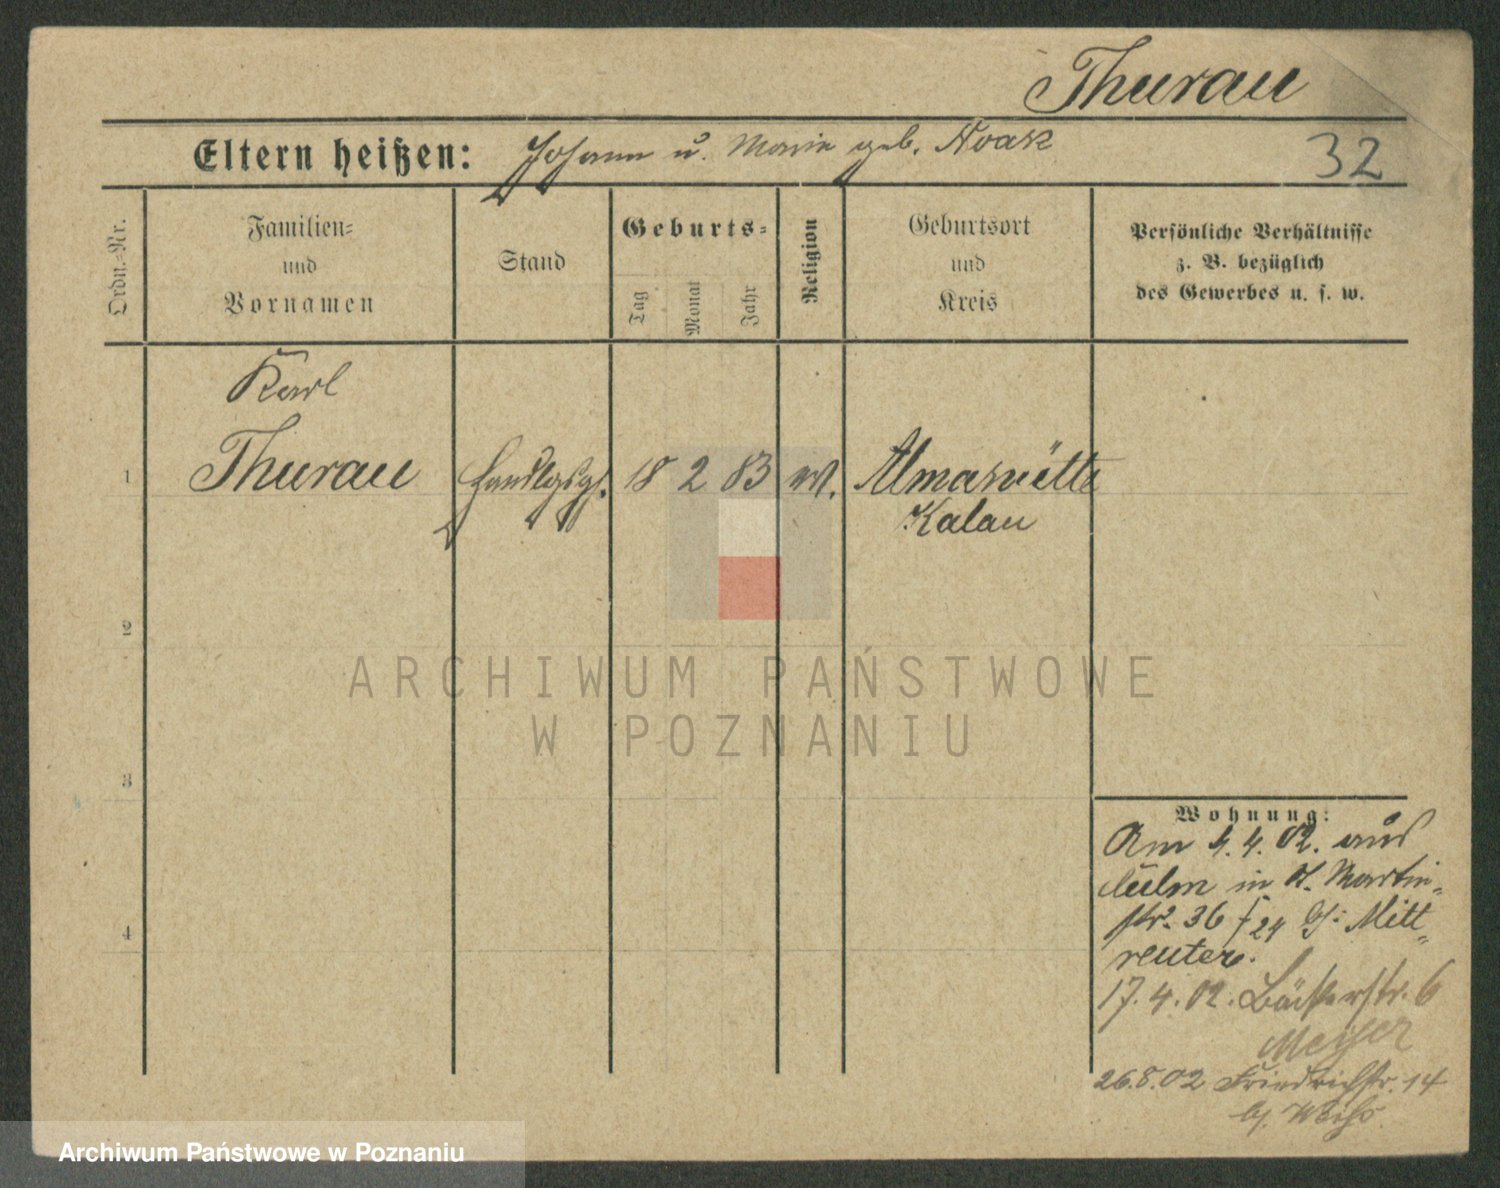 Thurau
Eltern heißen: Johann u. Marie geb. Noak
32
Ordn.-Nr.
Familien-
und
Vornamen
Stand
Geburts-
Tag
Monat
Jahr
Religion
Geburtsort
und
Kreis
Persönliche Verhältnisse
z. B. bezüglich
des Gewerbes u. s. w.
Karl
1 Thurau Handlgsgh. 18 2 83 ev.
Kalau
2
3
4
ARCHIWUM PAŃSTWOWE
W POZNANIU
Wohnung:
Am 4. 4. 02. aus
Culm in St. Martin-
str. 36 24 Mitt-
reuter.
17. 4. 02. Bäckerstr. 6
Meyer
26.8.02 Friedrichstr. 14
b/ Weiss
Archiwum Państwowe w Poznaniu